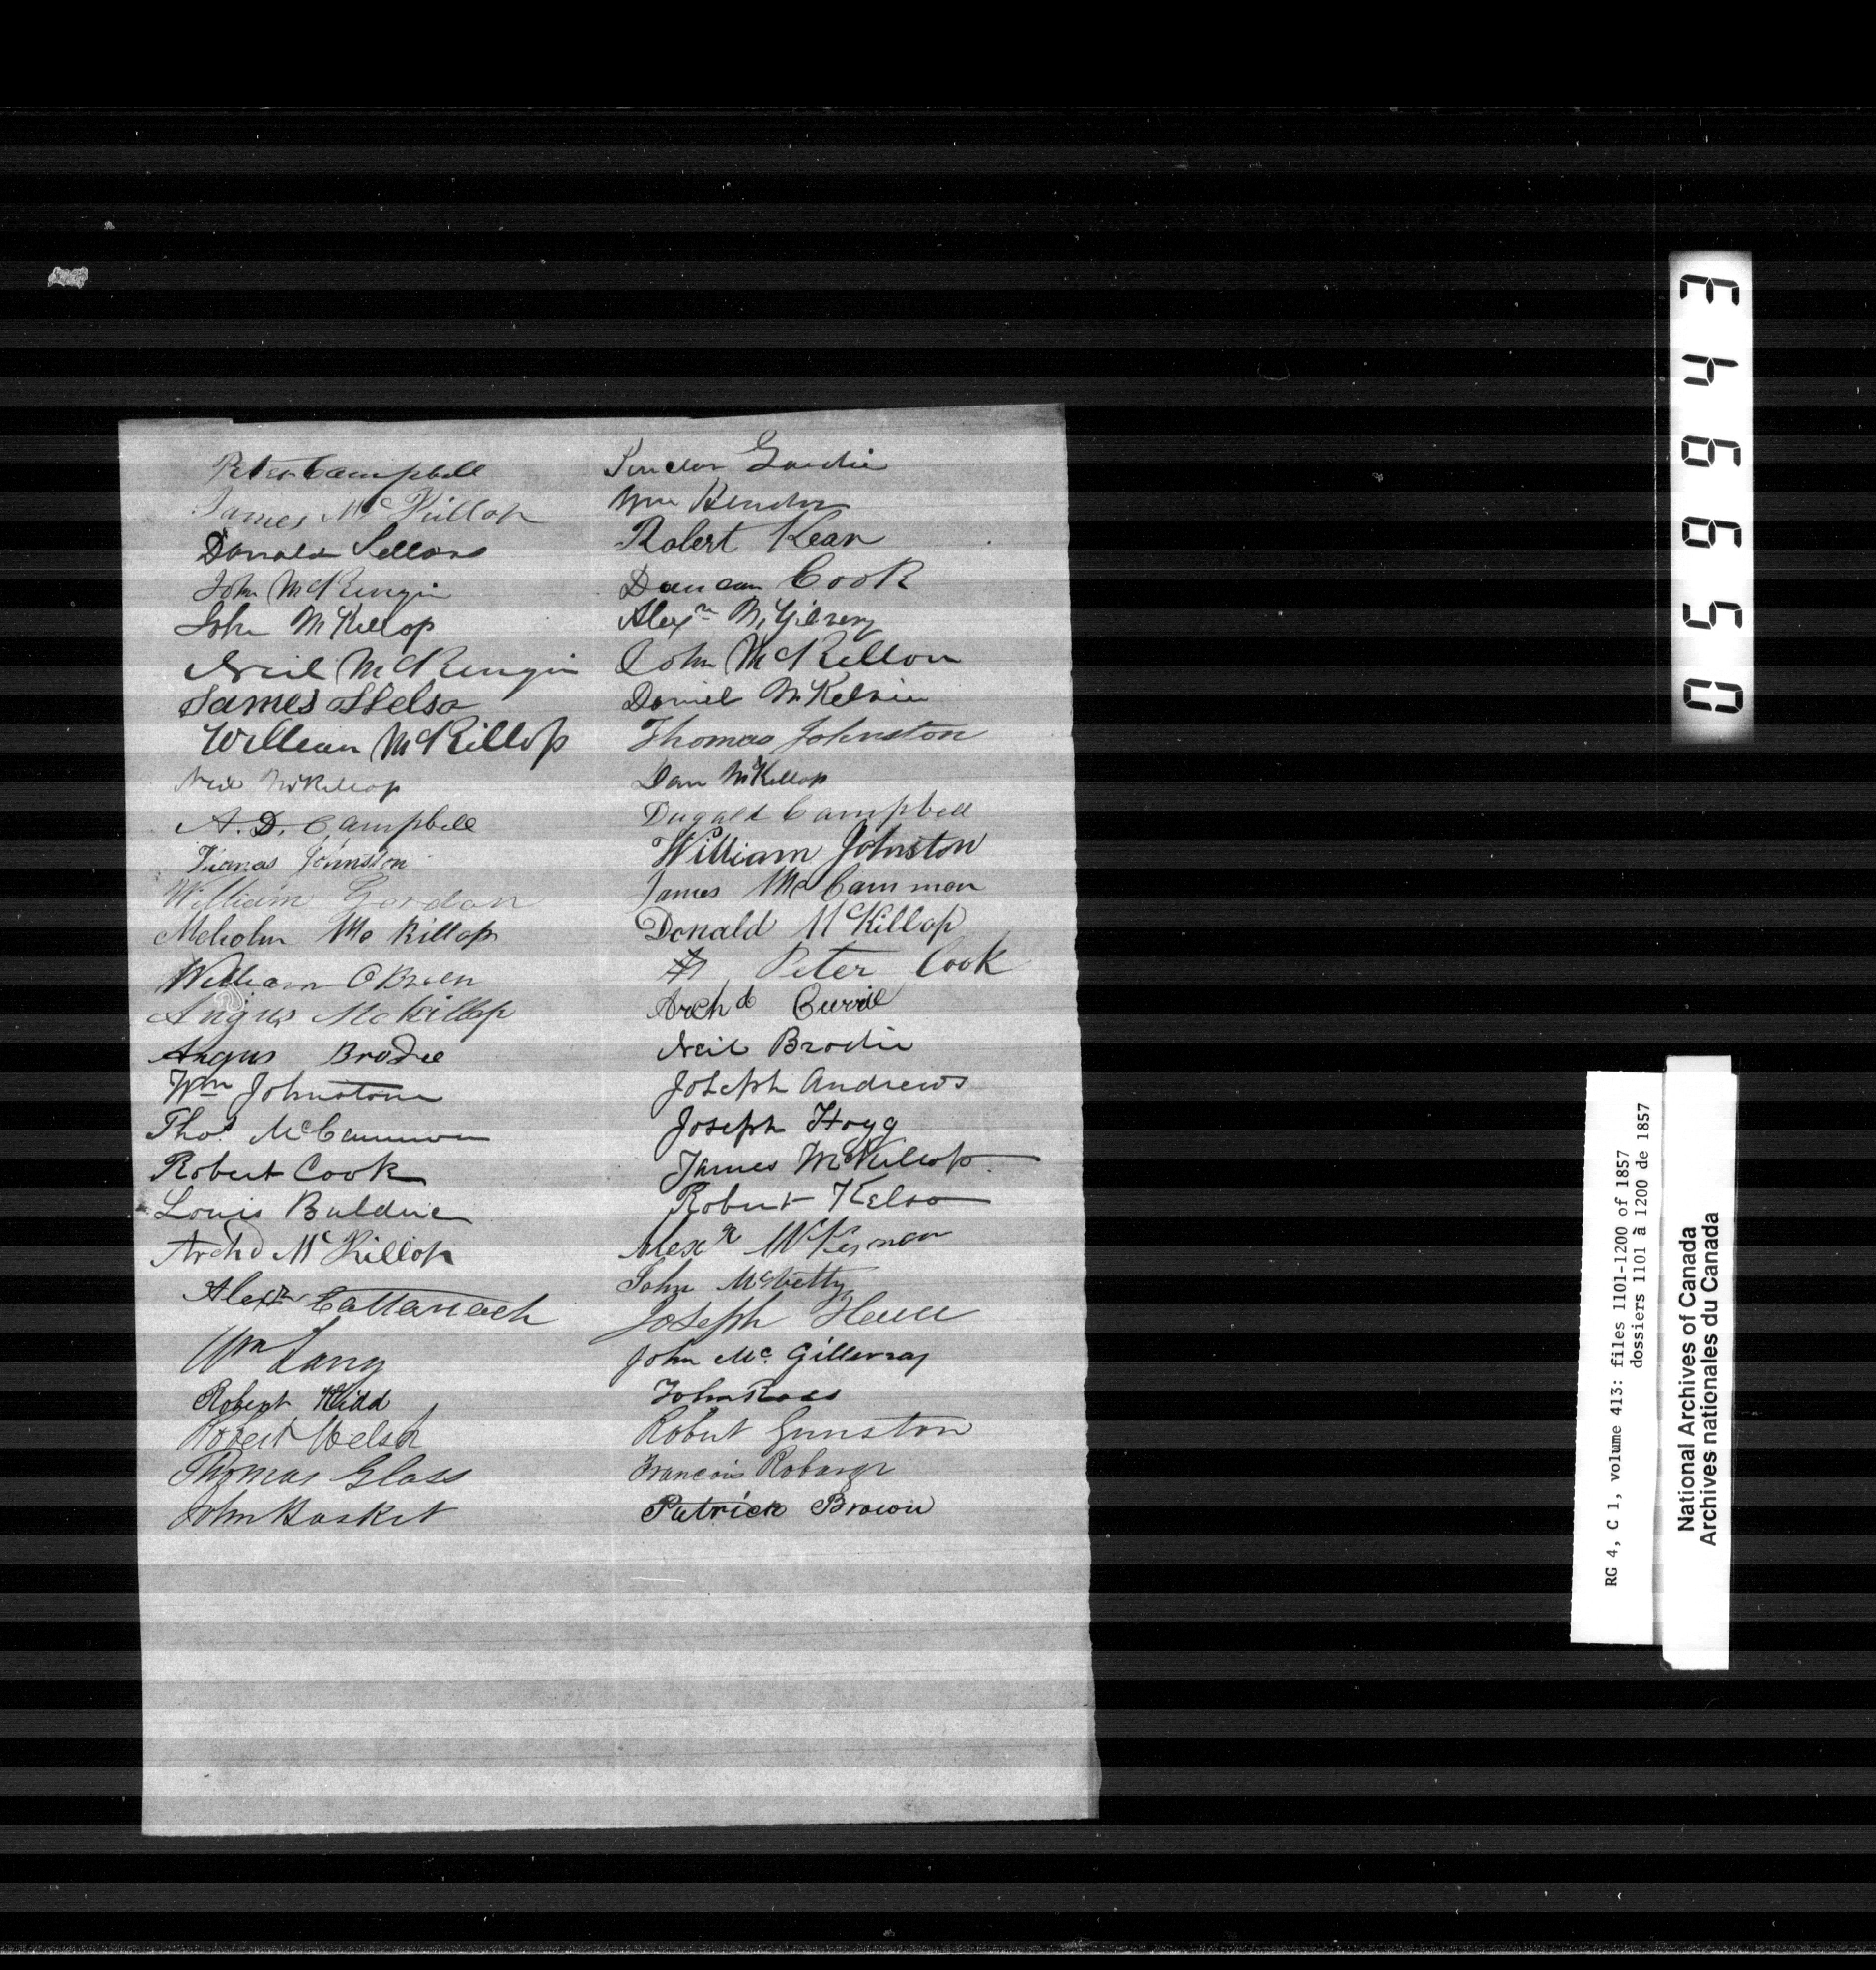 Peter Campbell
James McKillop
Donald Sellars
John McKenzie
John McKillop
Neil McKenzie
James Kelso
William McKillop
Neil McKillop
A. D. Campbell
Johnston
William Gordon
Melcholm Mc Killop
William O Brien
Angus Mc Killop
Angus Brodie
Wm Johnstone
Thos McCammon
Robert Cook
Louis Bulduc
Archd McKillop
Alexr Cattanach
Wm Lang
Robert Kidd
Robert Welsh
Thomas Glass
John Hasket
Sinclar Goudie
Wm
Robert Kean
Duncan Cook
Alexr McGilvery
John McKellon
Daniel McKelvie
Thomas Johnston
Dan McKillop
Dugald Campbell
William Johnston
James McCammon
Donald McKillop
Peter Cook
Archd Currie
Neil Brodie
Joseph Andrews
Joseph Hogg
James McKillop
Robert Kelso
Alexr McKernan
John McVetty
Joseph
John Mc. Gillevray
John Ross
Robert Gunston
Francois Robarge
Patrick Brown
056643
RG 4, C 1, volume 413: files 1101-1200 of 1857
dossiers 1101 à 1200 de 1857
National Archives of Canada
Archives nationales du Canada